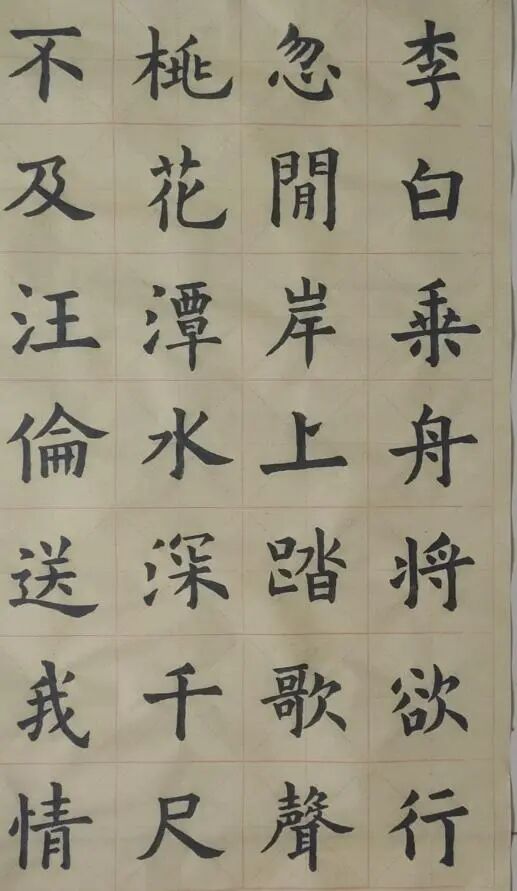 李白乘舟将欲行
忽閒岸上踏歌聲
桃花潭水深千尺
不及汪倫送我情